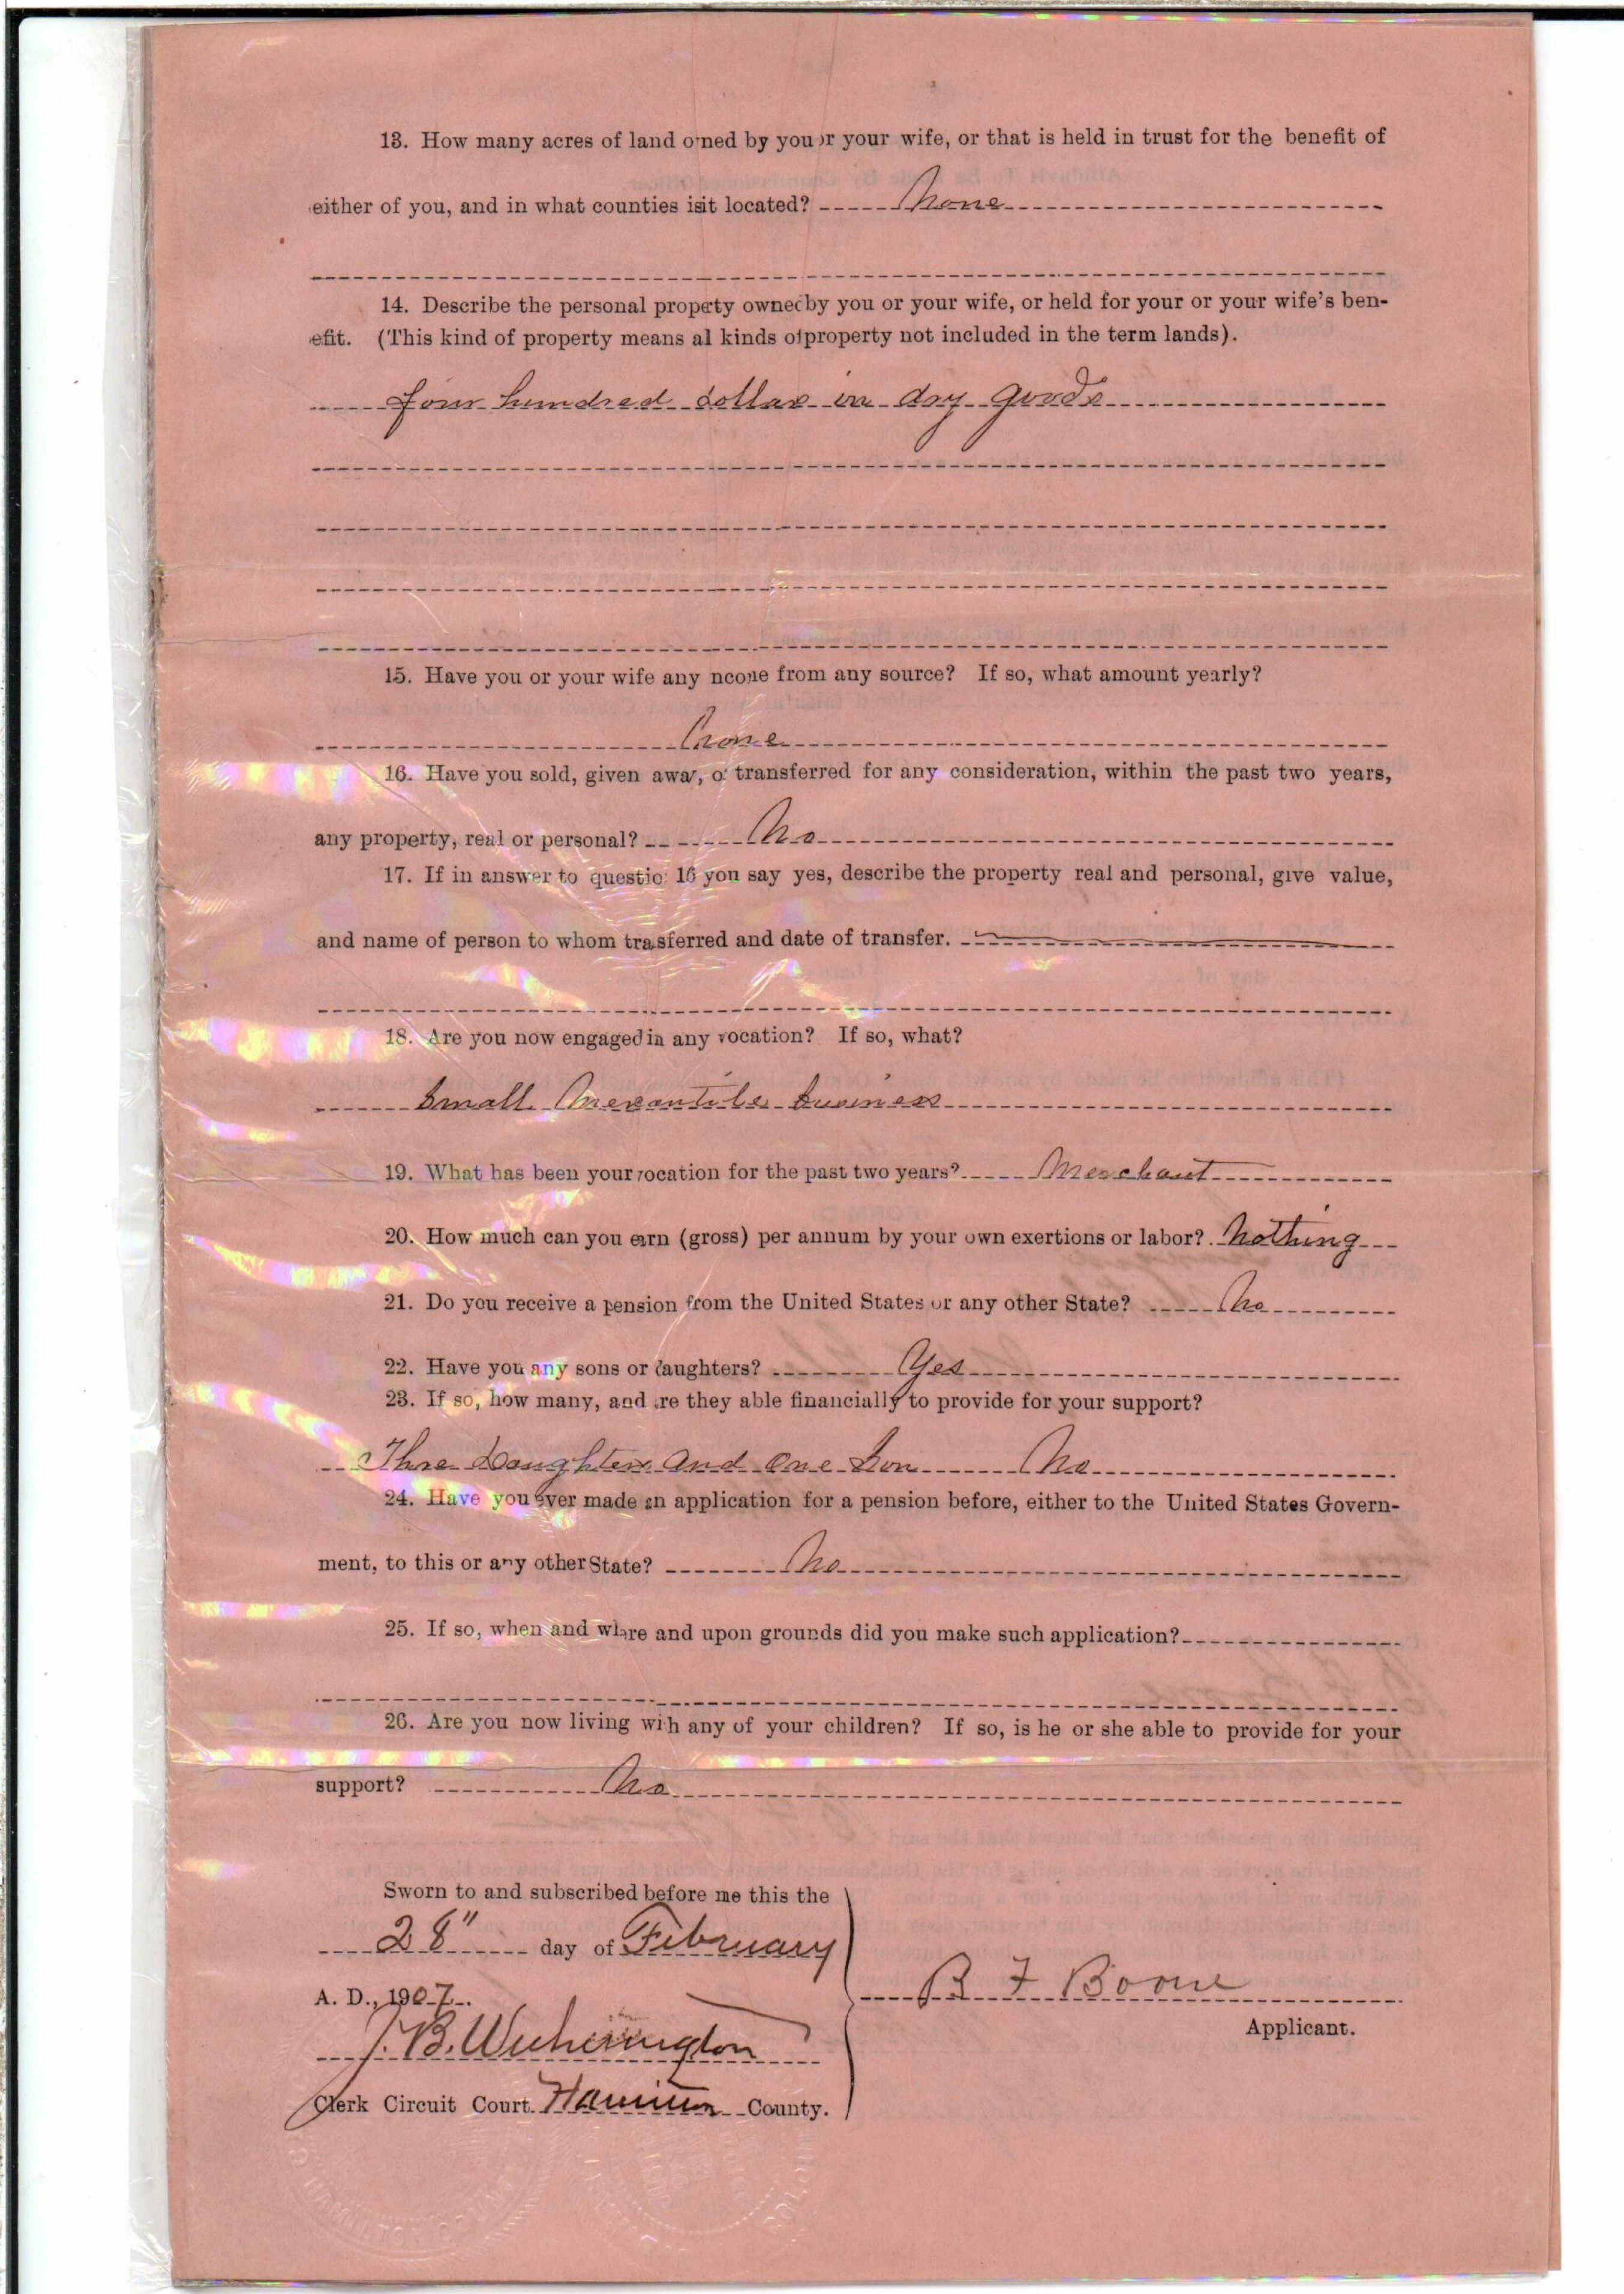 13. How many acres of land owned by you or your wife, or that is held in trust for the benefit of
either of you, and in what counties is it located? None
14. Describe the personal property owned by you or your wife, or held for your or your wife's ben-
efit. (This kind of property means al kinds of property not included in the term lands).
four hundred dollars in dry goods
15. Have you or your wife any ncome from any source? If so, what amount yearly?
none
16. Have you sold, given away, or transferred for any consideration, within the past two years,
any property, real or personal? No
17. If in answer to question 16 you say yes, describe the property real and personal, give value,
and name of person to whom trasferred and date of transfer.
18. Are you now engaged in any vocation? If so, what?
Small Mercantile business
19. What has been your vocation for the past two years? Merchant
20. How much can you earn (gross) per annum by your own exertions or labor? Nothing
21. Do you receive a pension from the United States or any other State? No
22. Have you any sons or daughters? Yes
23. If so, how many, and are they able financially to provide for your support?
Thre Daughters and One Son No
24. Have you ever made an application for a pension before, either to the United States Govern-
ment, to this or any other State? No
25. If so, when and where and upon grounds did you make such application?
26. Are you now living with any of your children? If so, is he or she able to provide for your
support? No
Sworn to and subscribed before me this the
28" day of February
A. D., 1907.
B F Boone
Applicant.
J. B. Witherington
Clerk Circuit Court Hamilton County.